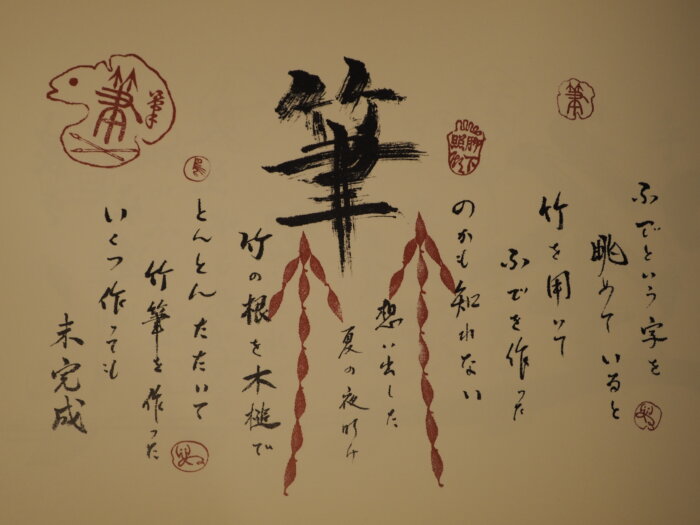 筆
ふでという字を
眺めていると
竹を用いて
ふでを作った
のかも知れない
想い出した
夏の夜明け
竹の根を木槌で
とんとんたたいて
竹筆を作った
いくつ作っても
未完成
筆
筆